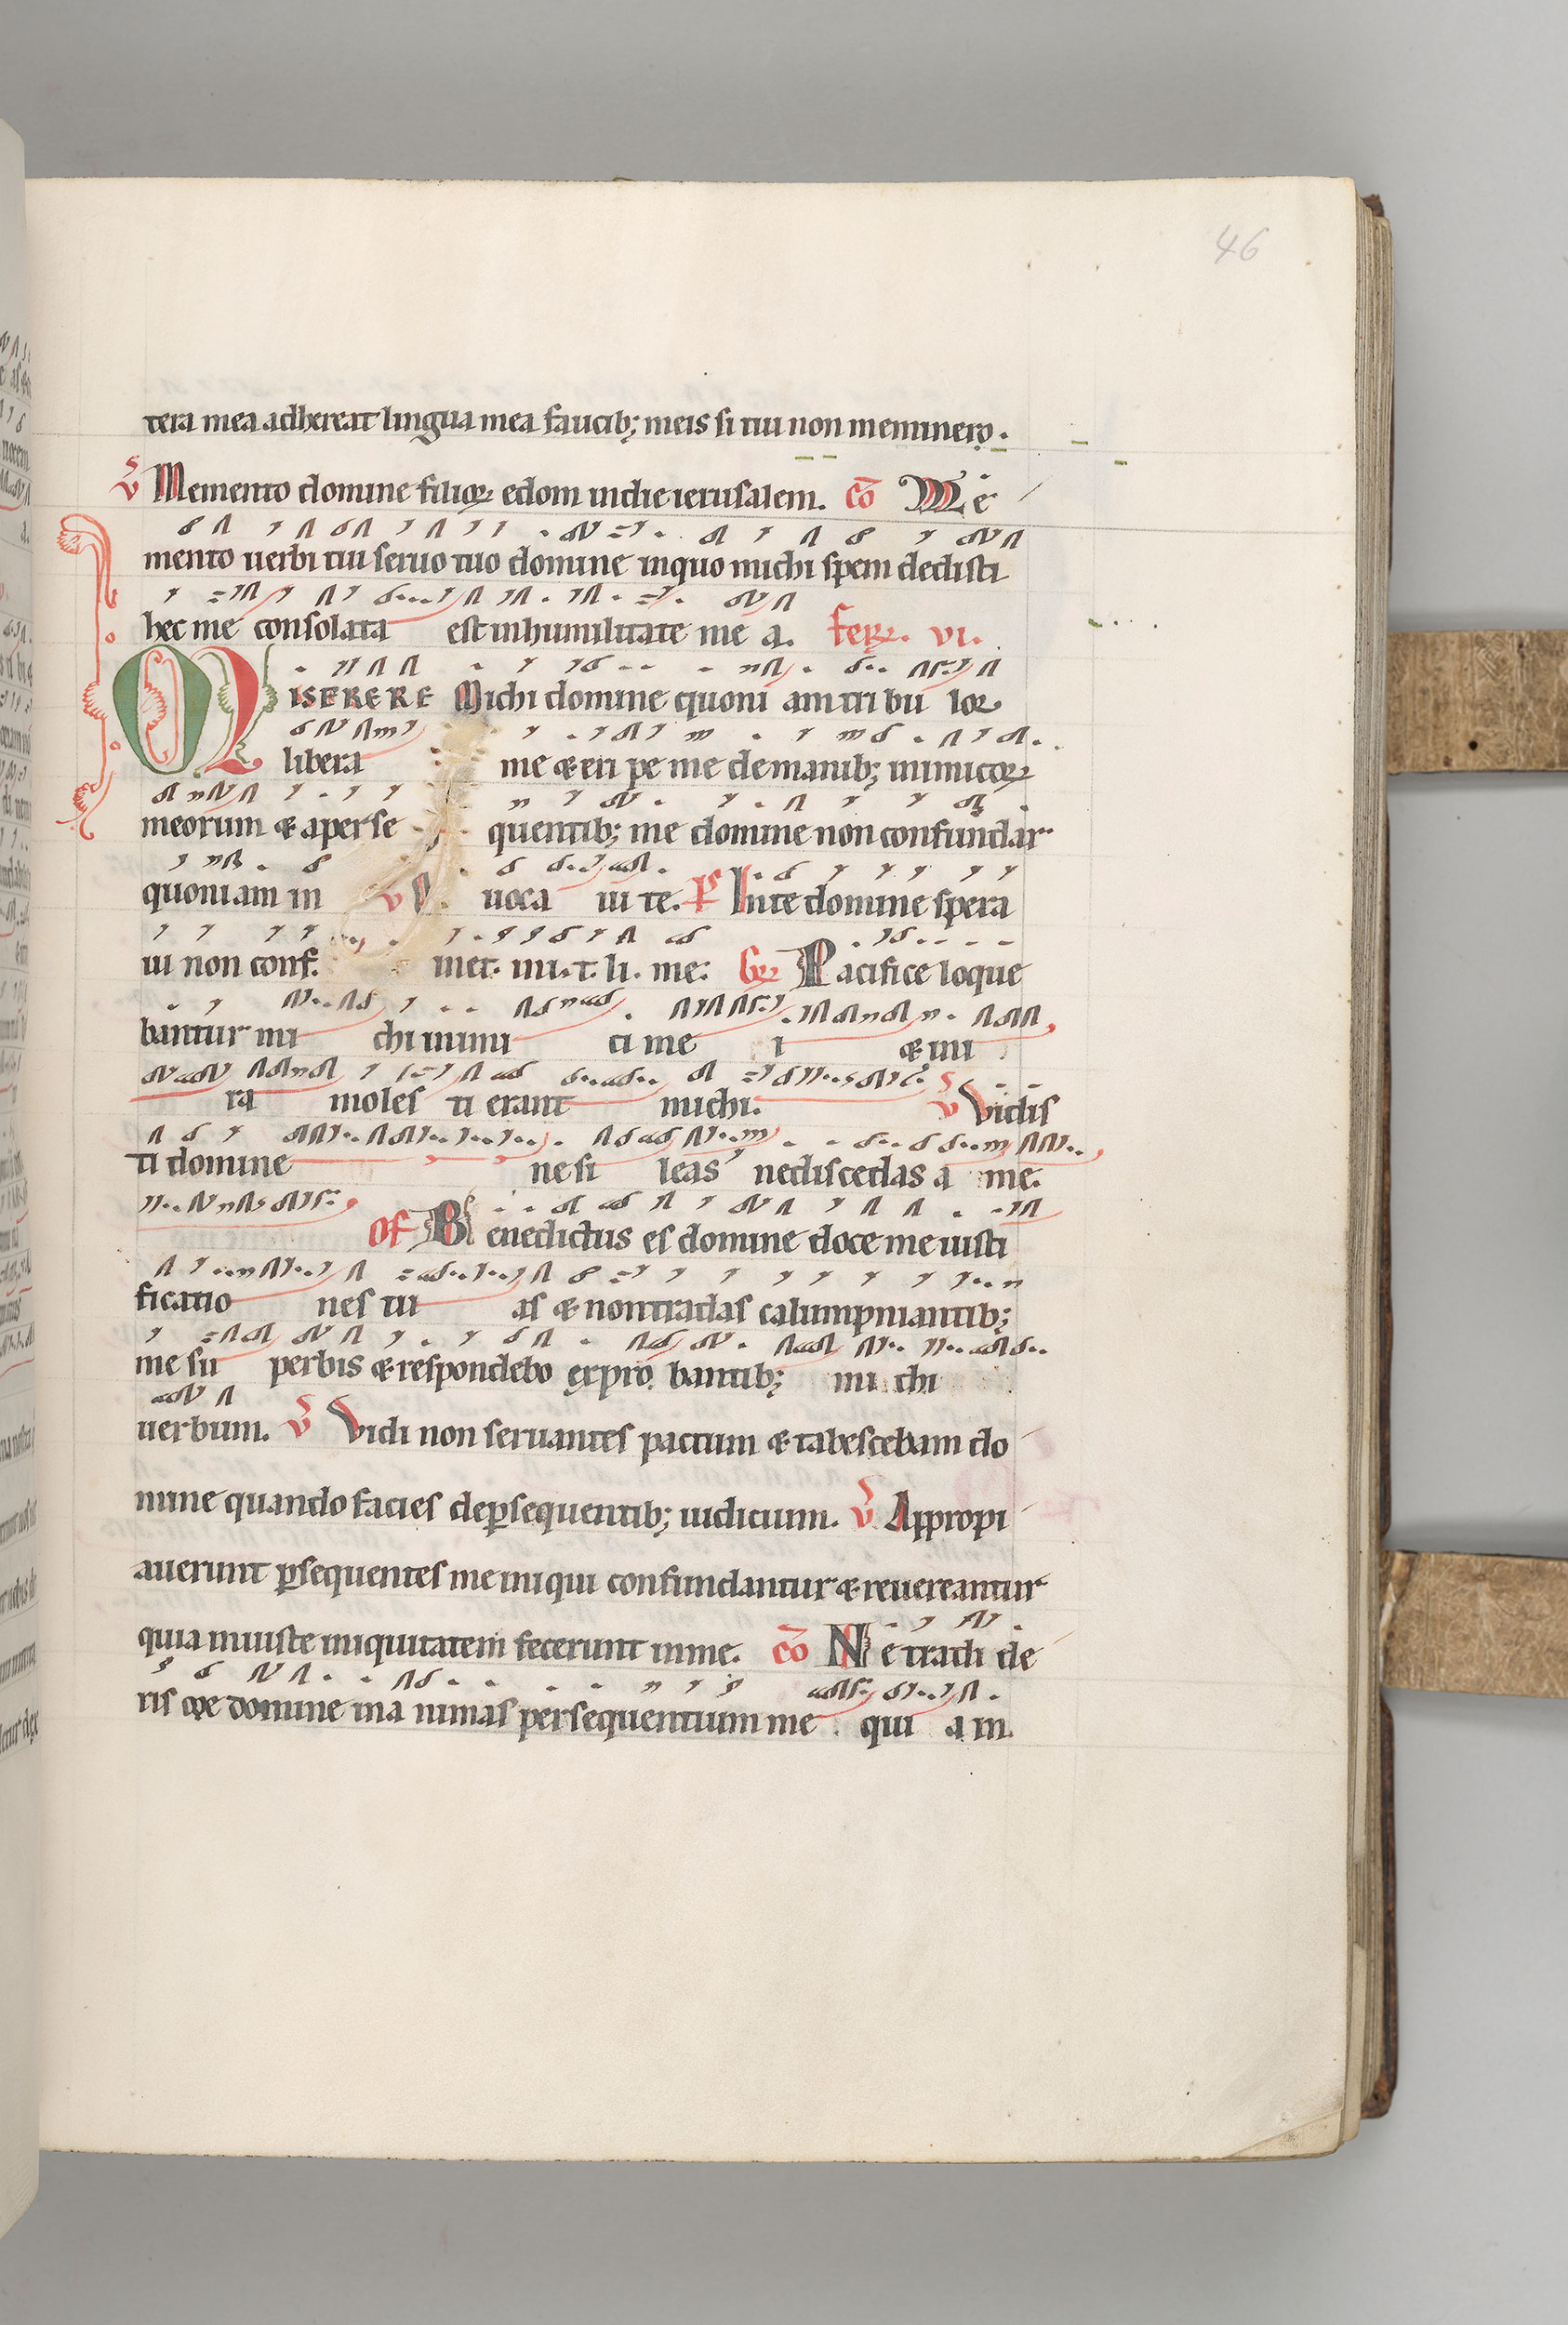 46
tera mea adhereat lingua mea faucib; meis si tui non meminero.
v̄ Memento domine filioꝝ edom in die ierusalem. cō Me
mento uerbi tui seruo tuo domine in quo michi spem dedisti
hec me consolata est in humilitate me a. ferꝝ. vi.
MISERERE Michi domine quoni am tri bu loꝝ
libera me & eri pe me de manib; inimicoꝝ
meorum & a perse quentib; me domine non confundar
quoniam in uoca ui te. P̄ In te domine spera
ui non conf. in et. in i. t. li. me. Gꝝ Pacifice loque
bantur mi chi inimi ci me i & in i
ra moles ti erant michi. v̄ Vidis
ti domine ne si leas ne discedas a me.
Of Benedictus es domine doce me iusti
ficatio nes tu as & non tradas calumpniantib;
me su perbis & respondebo expro bantib; mi chi
uerbum. v̄ Vidi non seruantes pactum & tabescebam do
mine quando facies de ꝑsequentib; iudicium. v̄ Appropi
auerunt ꝑsequentes me iniqui confundantur & reuereantur
quia iniuste iniquitatem fecerunt in me. cō Ne tradi de
ris me domine in a nimas persequentium me qui a in